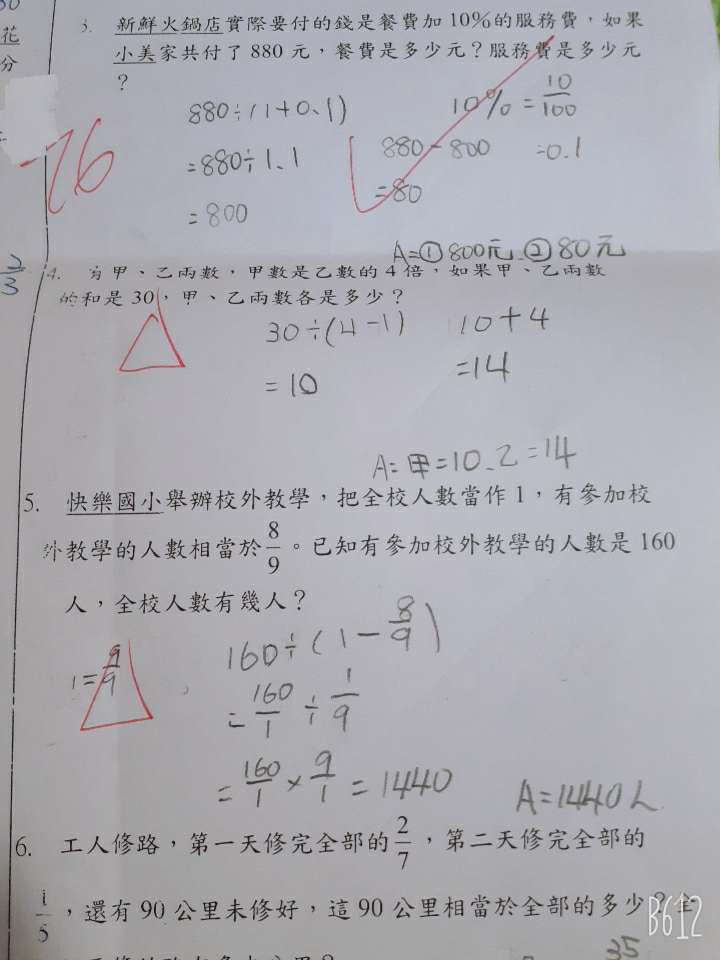 花
分
3. 新鮮火鍋店實際要付的錢是餐費加10%的服務費，如果
小美家共付了880元，餐費是多少元？服務費是多少元
？
880÷(1+0.1)
=880÷1.1
=800
10%=10/100
=0.1
880-800
=80
A=①800元、②80元
-76
2/3
4. 有甲、乙兩數，甲數是乙數的4倍，如果甲、乙兩數
的和是30，甲、乙兩數各是多少？
30÷(4-1)
=10
10+4
=14
A=甲=10、乙=14
5. 快樂國小舉辦校外教學，把全校人數當作1，有參加校
外教學的人數相當於8/9。已知有參加校外教學的人數是160
人，全校人數有幾人？
1=9/9
160÷(1-8/9)
=160/1÷1/9
=160/1×9/1=1440
A=1440人
6. 工人修路，第一天修完全部的2/7，第二天修完全部的
1/5，還有90公里未修好，這90公里相當於全部的多少？全
35
B612